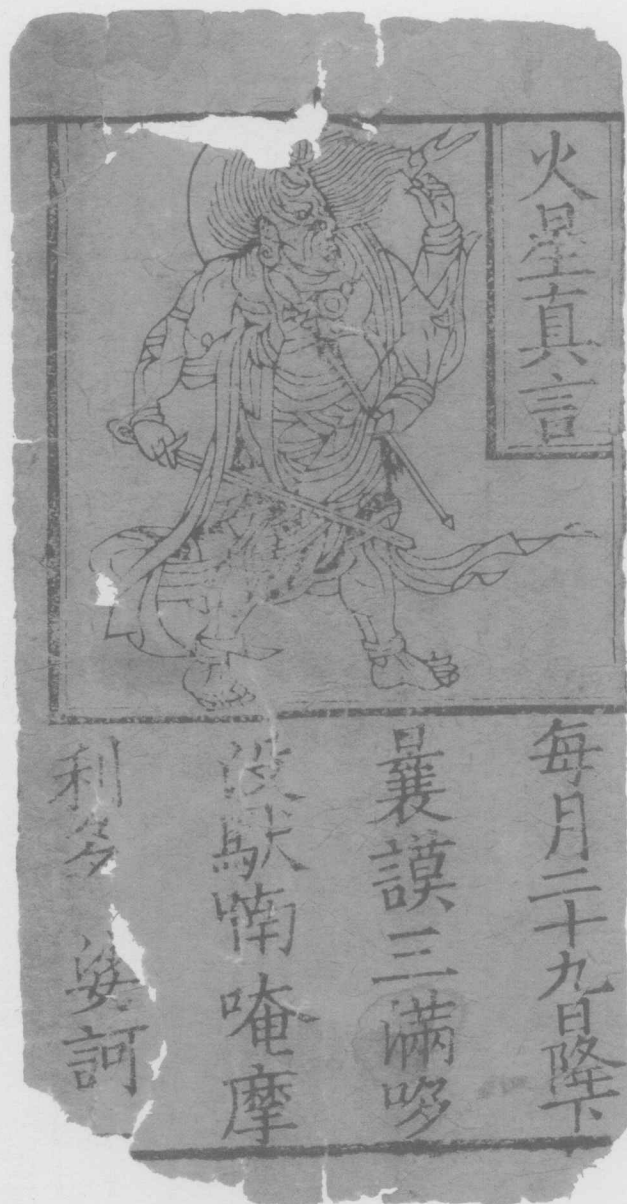 火星真言
每月二十九日降下
曩謨三滿哆
沒馱喃唵摩
利多 娑訶